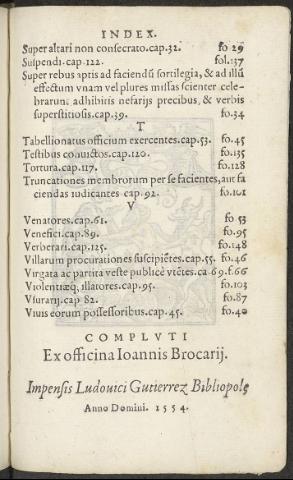 INDEX.
Super altari non consecrato.cap.32. fo 29
Suspendi.cap.122. fol.137
Super rebus aptis ad faciendũ sortilegia, & ad illũ
effectum vnam vel plures missas scienter cele-
brarunt adhibitis nefarijs precibus, & verbis
superstitiosis.cap.39. fo.34
T
Tabellionatus officium exercentes.cap.53. fo.45
Testibus conuictos.cap.120. fo.135
Tortura.cap.117. fo.128
Truncationes membrorum per se facientes, aut fa
ciendas iudicantes cap.92. fo.101
V
Venatores.cap.61. fo 53
Venefici.cap.89. fo.95
Verberari.cap.125. fo.148
Villarum procurationes suscipiẽtes.cap.55. fo.46
Virgata ac partita veste publicè vtẽtes.ca.69.f.66
Violentiæq; illatores.cap.95. fo.103
Vsurarij.cap 82. fo.87
Viuis eorum possessoribus.cap.45. fo.40
COMPLVTI
Ex officina Ioannis Brocarij.
Impensis Ludouici Gutierrez Bibliopolę
Anno Domini. 1554.